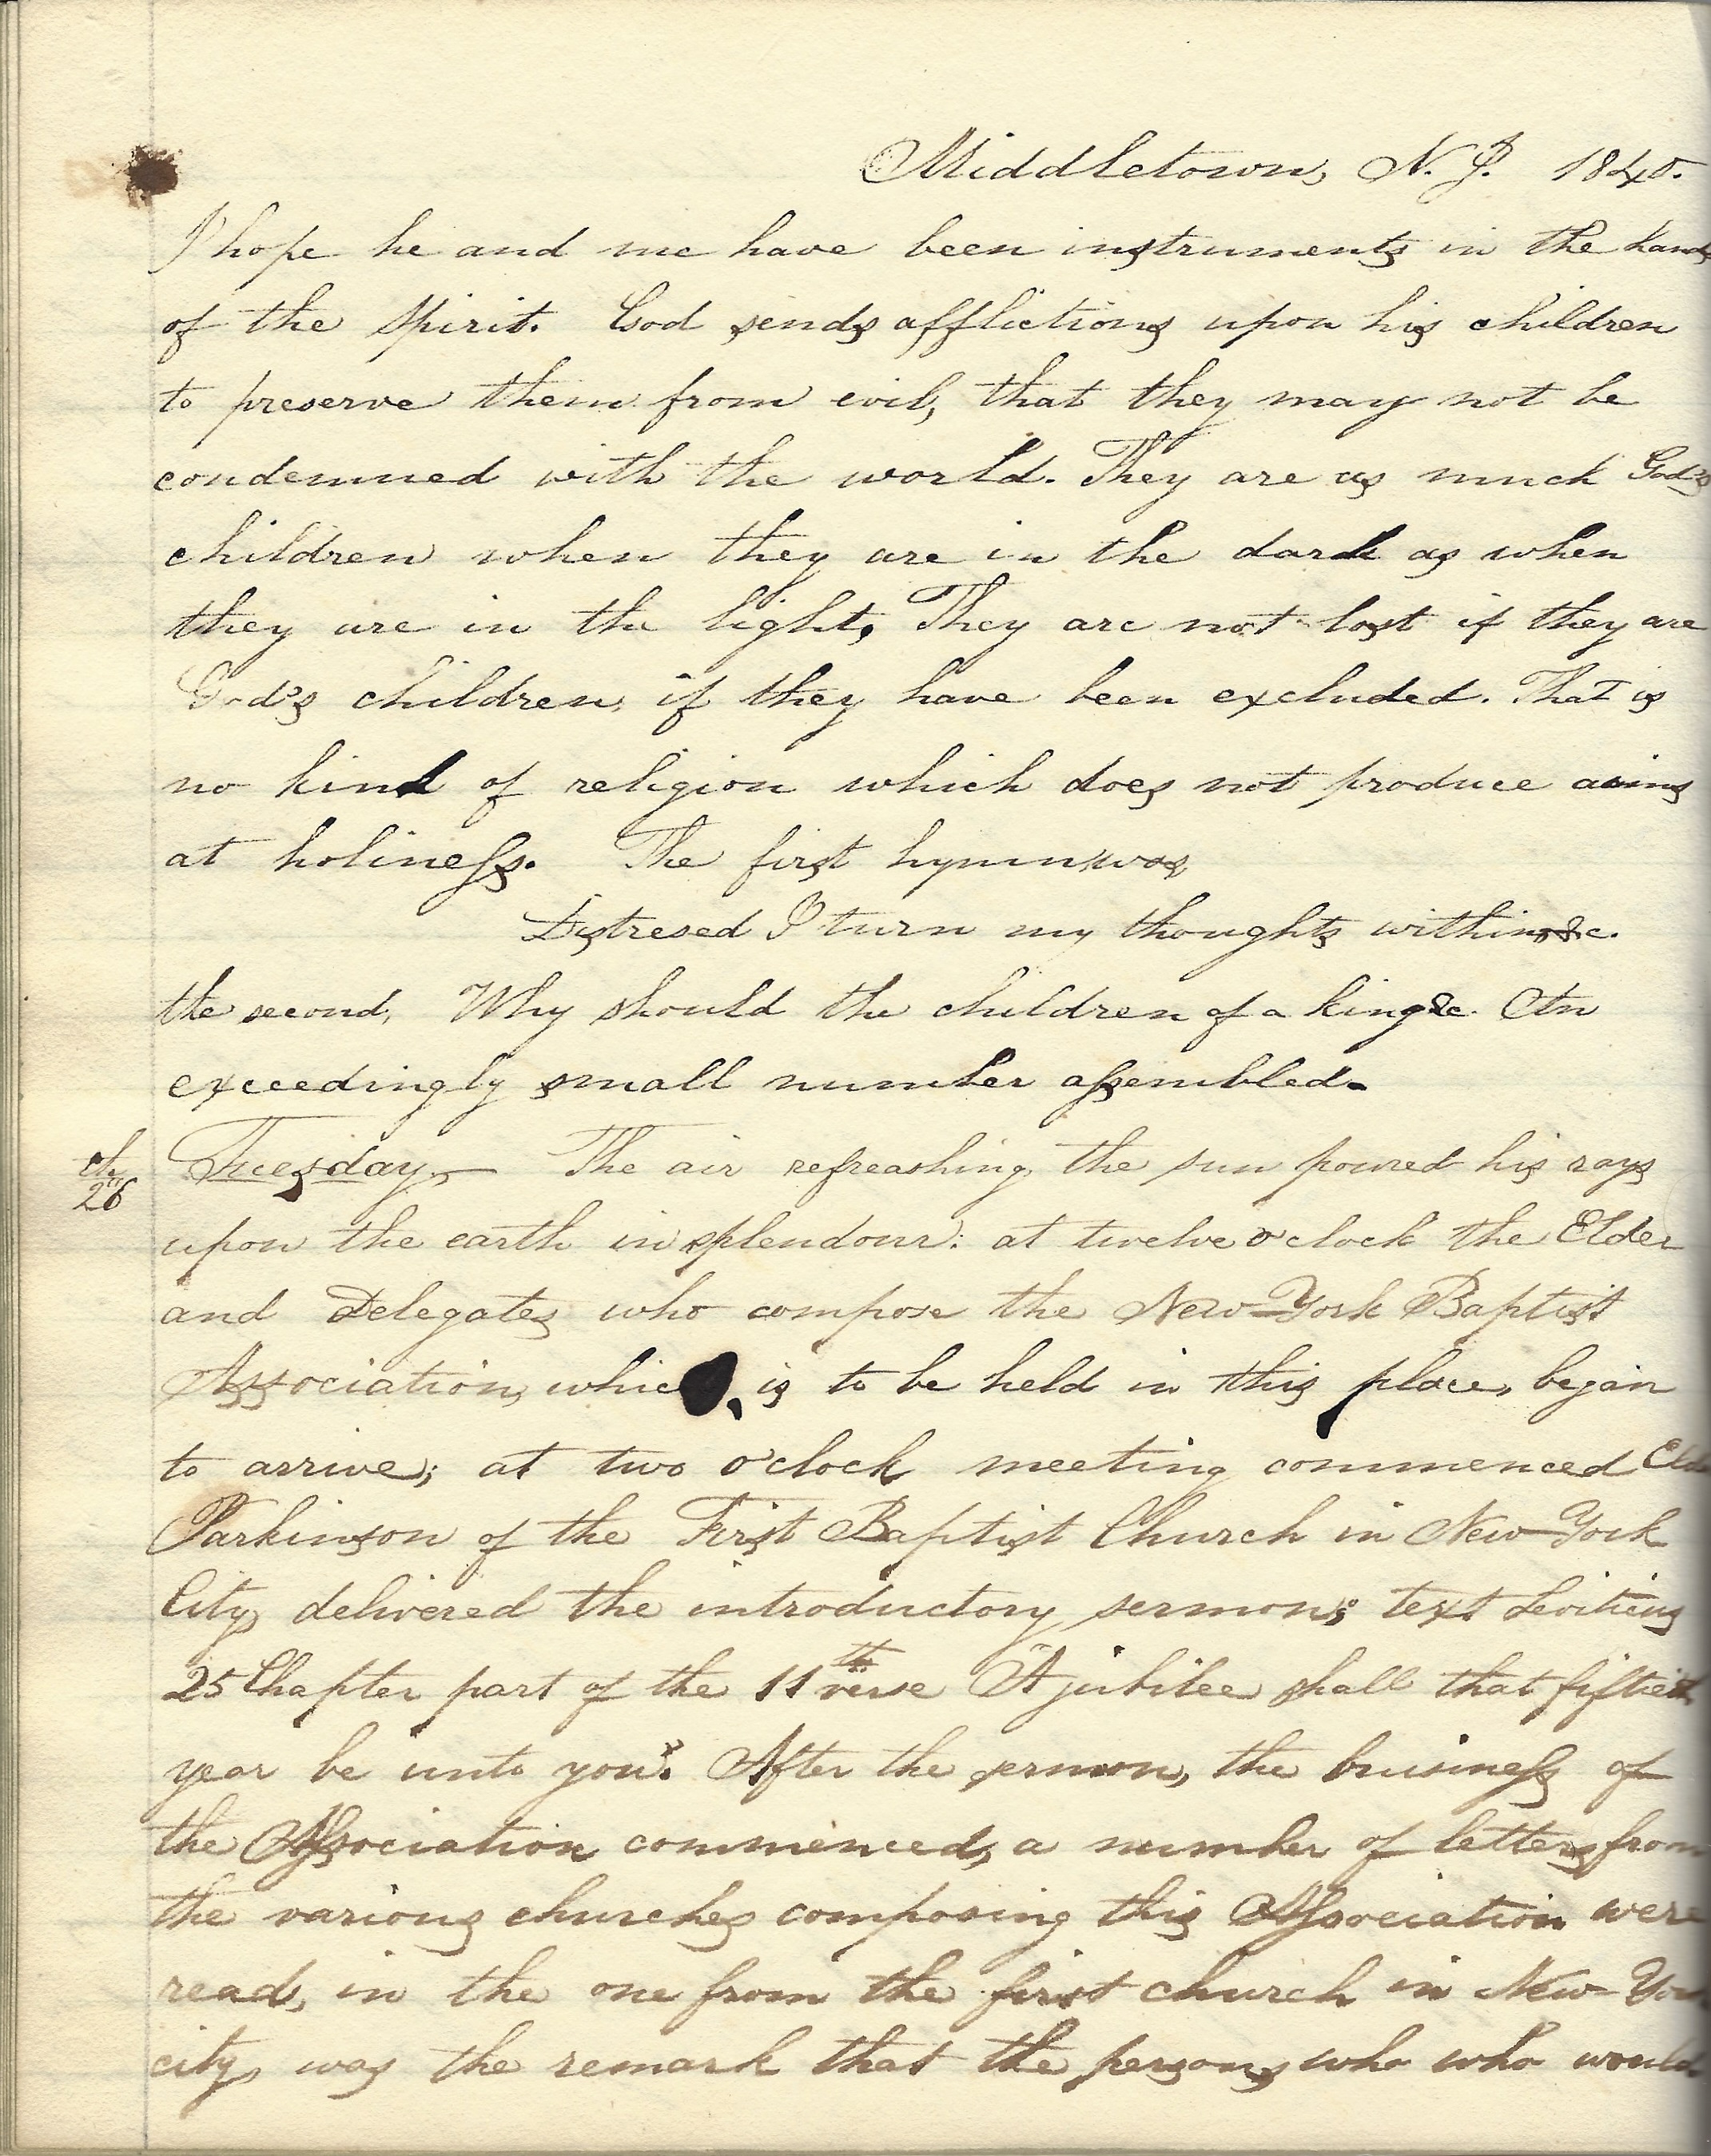 Middletown, N. J. 1840.
I hope he and me have been instruments in the hands
of the Spirit. God sends afflictions upon his children
to preserve them from evil, that they may not be
condemned with the world. They are as much God's
children when they are in the dark as when
they are in the light, They are not lost if they are
God's children, if they have been excluded. That is
no kind of religion which does not produce aims
at holiness. The first hymn was
Distresed I turn my thoughts within &c.
the second, Why should the children of a king &c. An
exceedingly small number assembled.
26th Tuesday, The air refreashing, the sun poured his rays
upon the earth in splendour: at twelve o'clock the Elder
and Delegates who compose the New-York Baptist
Association, which is to be held in this place, began
to arrive; at two o'clock meeting commenced Elder
Parkinson of the First Baptist Church in New-York
City, delivered the introductory sermon; text Leviticus
25 Chapter part of the 11th verse "A jubilee shall that fiftieth
year be unto you". After the sermon, the buisiness of
the Association commenced, a number of letters from
the various churches composing this Association were
read, in the one from the first church in New-York
city, was the remark that the persons who who would